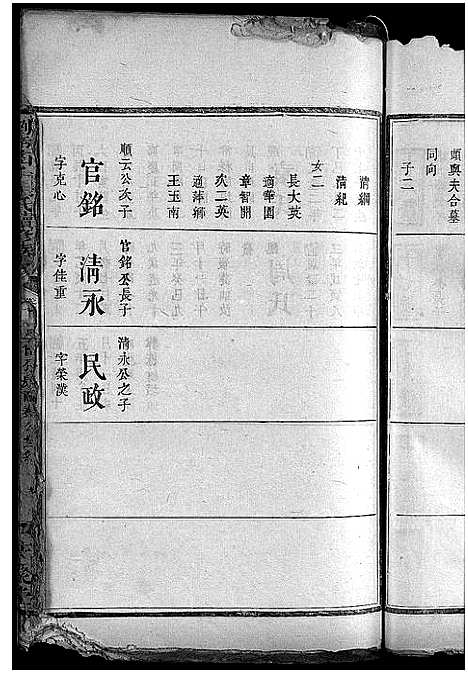 頭與夫合墓
同向
子二
清綱
清紀
女二
長大英
適華園
章智開
次二英
適萍鄉
王玉南
順云公次子
官銘
字克心
官銘公長子
清永
字佳重
清永公之子
民政
字榮漢